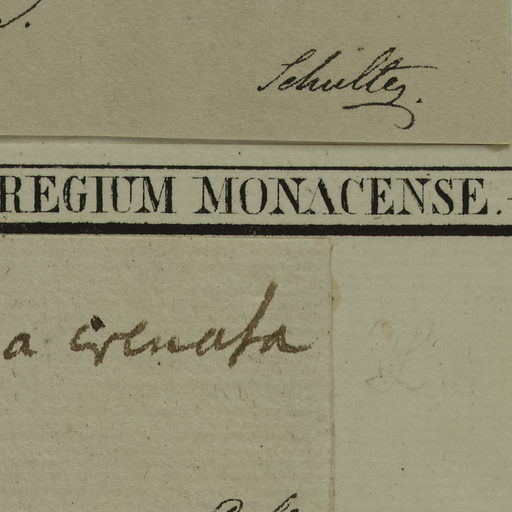 Schultes.
REGIUM MONACENSE.
a crenata